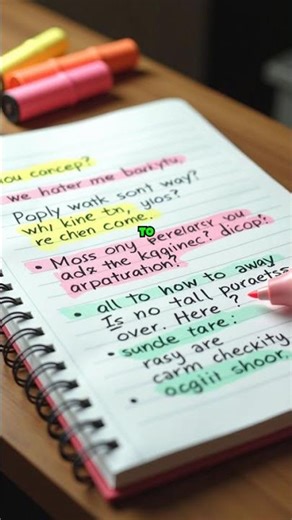 ou concep?
we hater me barkytu.
Poply watk sont way?
why kine tn, ylos?
re chen come.
TO
• Moss ony perelarsy you
adz the kaginec? dicop?
arpaturation?
• all to how to away
Is no tall puraetss
over. Here?
• sunde tare:
rasy are
carm checkity
ocgiit shoor.